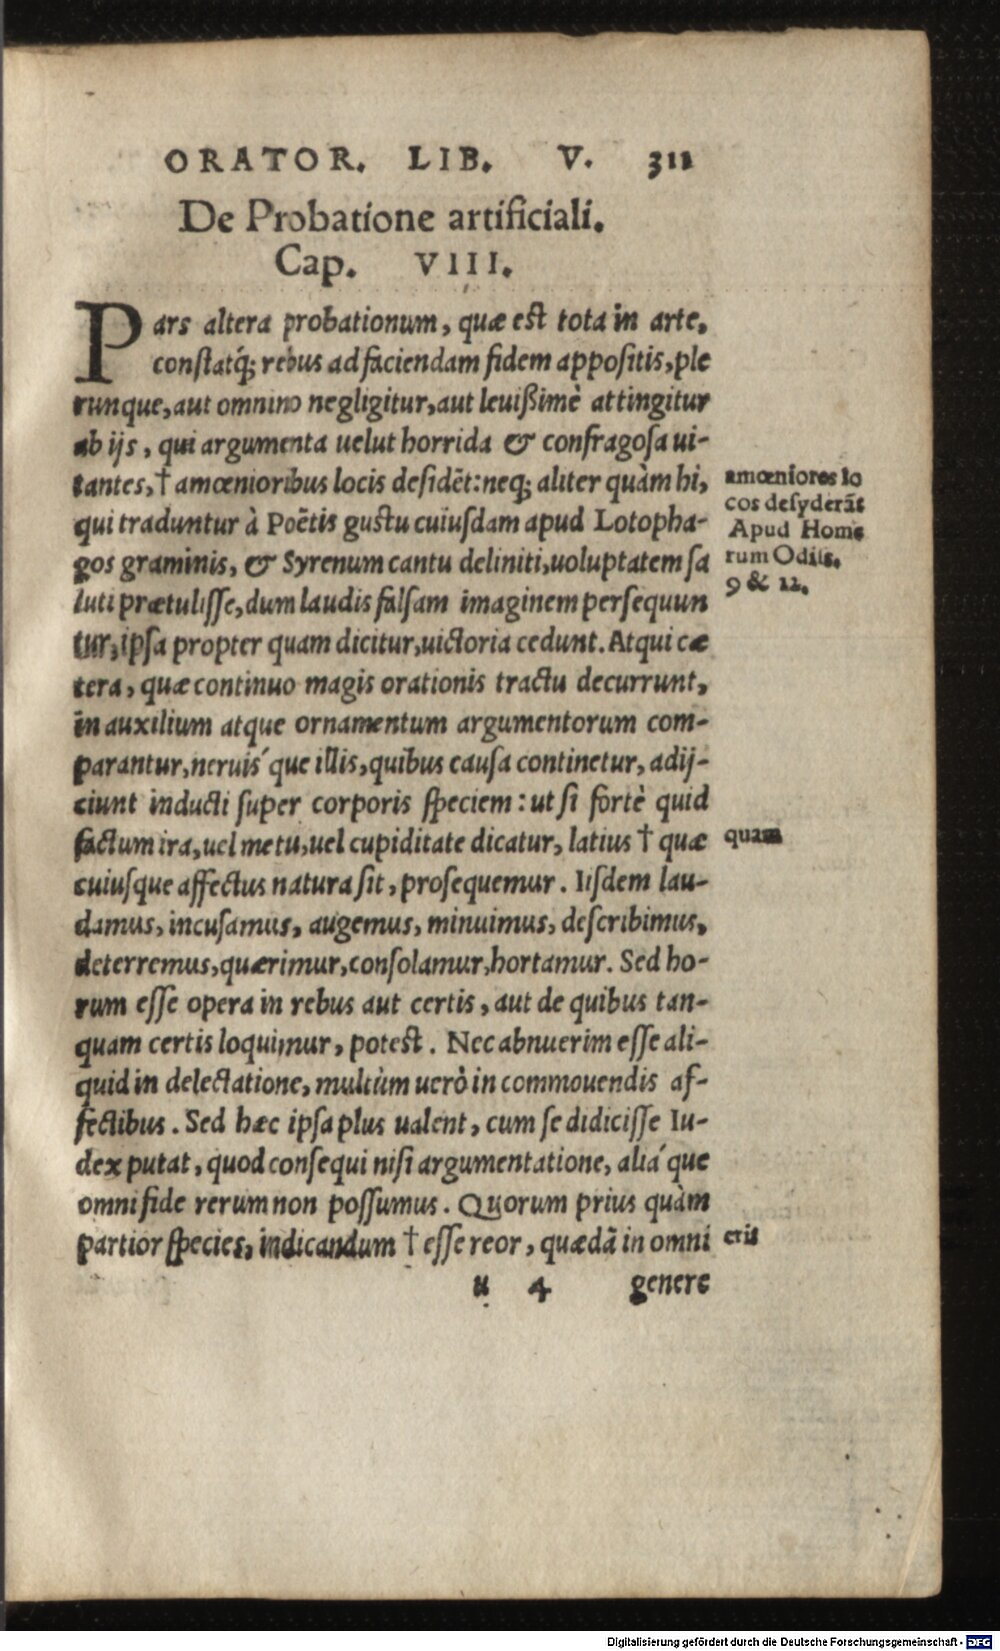 ORATOR. LIB. V. 311
De Probatione artificiali.
Cap. VIII.
Pars altera probationum, quæ est tota in arte,
constatq́; rebus ad faciendam fidem appositis, ple
runque, aut omnino negligitur, aut leuißimè attingitur
ab ijs, qui argumenta uelut horrida & confragosa ui-
tantes, † amœnioribus locis desidēt: neq; aliter quàm hi,
qui traduntur à Poëtis gustu cuiusdam apud Lotopha-
gos graminis, & Syrenum cantu deliniti, uoluptatem sa
luti prætulisse, dum laudis falsam imaginem persequun
tur, ipsa propter quam dicitur, uictoria cedunt. Atqui cæ
tera, quæ continuo magis orationis tractu decurrunt,
in auxilium atque ornamentum argumentorum com-
parantur, neruis´que illis, quibus causa continetur, adij-
ciunt inducti super corporis speciem: ut si fortè quid
factum ira, uel metu, uel cupiditate dicatur, latius † quæ
cuiusque affectus natura sit, prosequemur. Iisdem lau-
damus, incusamus, augemus, minuimus, describimus,
deterremus, quærimur, consolamur, hortamur. Sed ho-
rum esse opera in rebus aut certis, aut de quibus tan-
quam certis loquimur, potest. Nec abnuerim esse ali-
quid in delectatione, multùm uerò in commouendis af-
fectibus. Sed hæc ipsa plus ualent, cum se didicisse Iu-
dex putat, quod consequi nisi argumentatione, alia´que
omni fide rerum non possumus. Quorum prius quàm
partior species, indicandum † esse reor, quædā in omni
u 4 genere
amœniores lo
cos desyderāt
Apud Home
rum Odiss.
9 & 12.
quam
erit
Digitalisierung gefördert durch die Deutsche Forschungsgemeinschaft - DFG